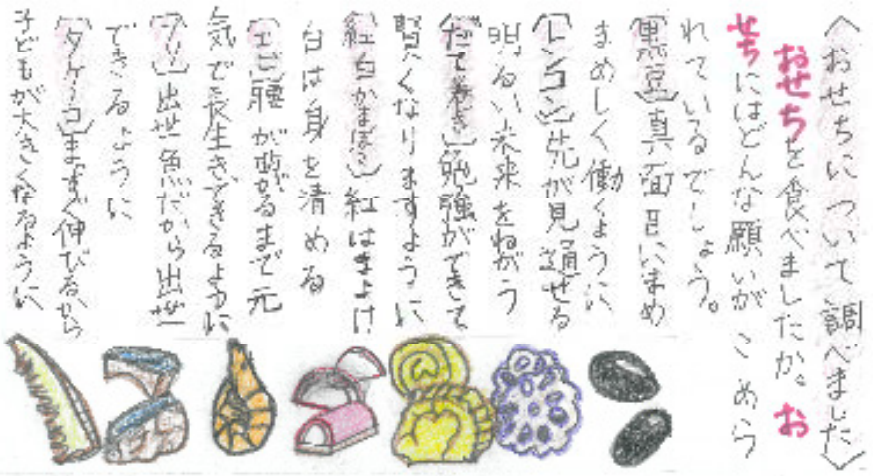 〈おせちについて調べました〉
おせちを食べましたか。お
せちにはどんな願いがこめら
れているでしょう。
〔黒豆〕真面目にまめ
まめしく働くように
〔レンコン〕先が見通せる
明るい未来をねがう
〔だて巻き〕勉強ができて
賢くなりますように
〔紅白かまぼこ〕紅はまよけ
白は身を清める
〔エビ〕腰が曲がるまで元
気で長生きできるように
〔ブリ〕出世魚だから出世
できるように
〔タケノコ〕まっすぐ伸びるから
子どもが大きくなるように